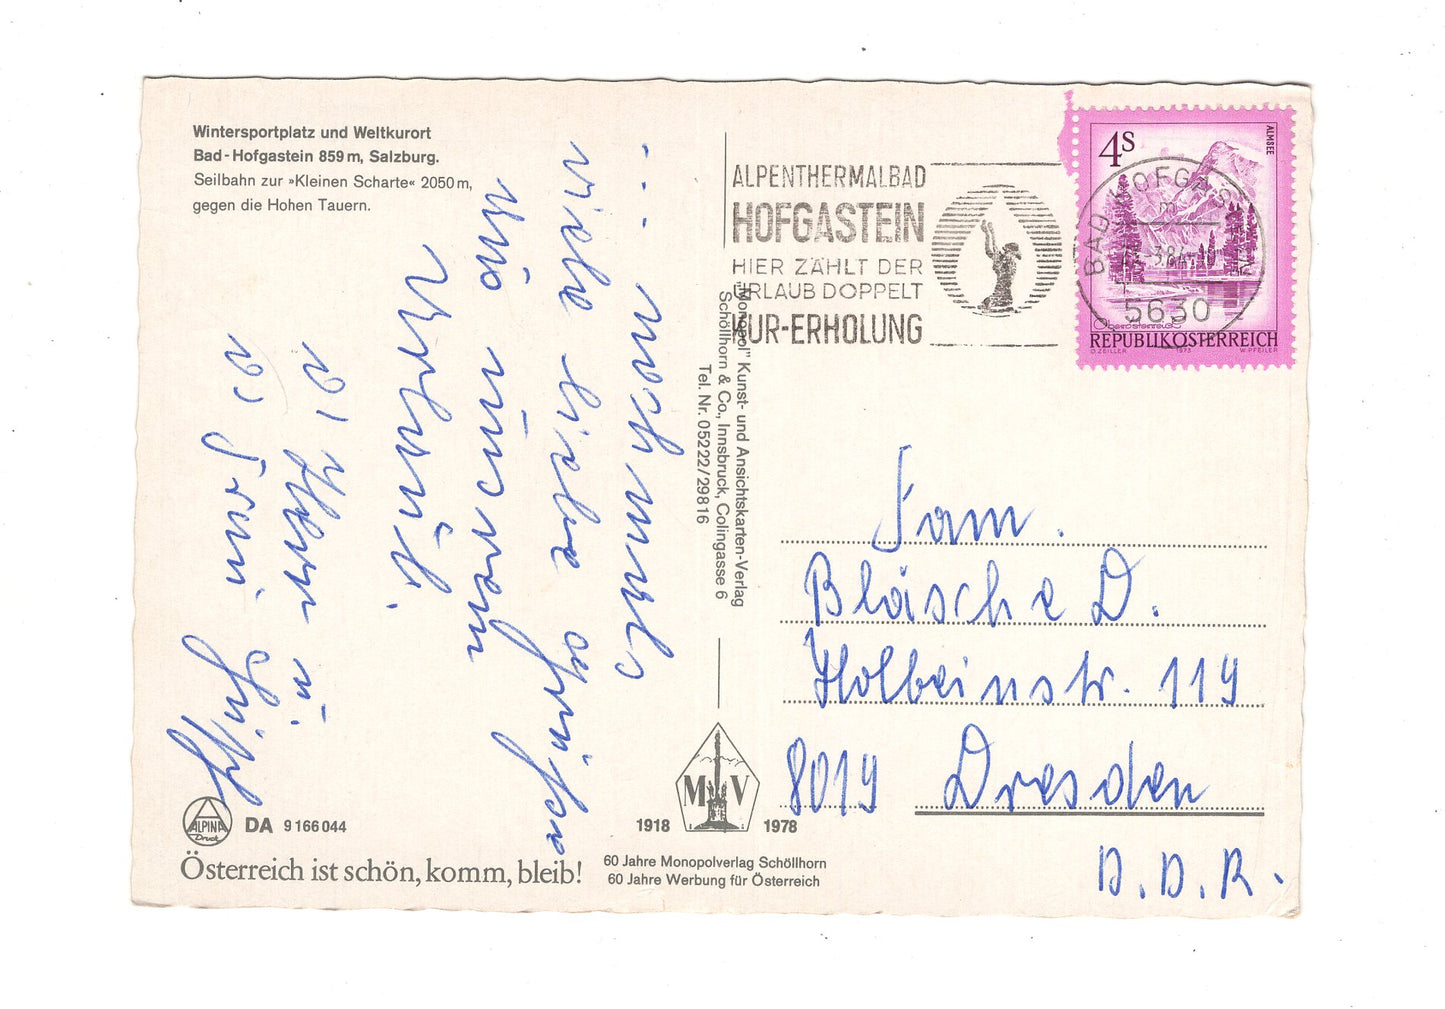 Wintersportplatz und Weltkurort
Bad-Hofgastein 859 m, Salzburg.
Seilbahn zur »Kleinen Scharte« 2050 m,
gegen die Hohen Tauern.
... nochmals
viele liebe Grüße
aus unserem
Urlaub.
Hans u.
"Monopol" Kunst- und Ansichtskarten-Verlag
Schöllhorn & Co., Innsbruck, Colingasse 6
Tel. Nr. 05222/29816
ALPENTHERMALBAD
HOFGASTEIN
HIER ZÄHLT DER
URLAUB DOPPELT
KUR-ERHOLUNG
4S
ALMSEE
Oberösterreich
REPUBLIK ÖSTERREICH
O. ZEILLER 1973 W. PFEILER
BAD HOFGASTEIN
5630
Fam.
Bläsche D.
Holbeinstr. 119
8019 Dresden
D.D.R.
M V
1918 1978
60 Jahre Monopolverlag Schöllhorn
60 Jahre Werbung für Österreich
ALPINA
Druck
DA 9 166 044
Österreich ist schön, komm, bleib!